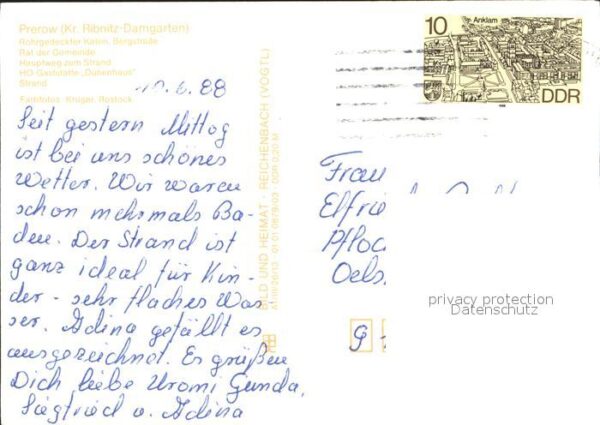 Prerow (Kr. Ribnitz-Damgarten)
Rohrgedeckter Katen, Bergstraße
Rat der Gemeinde
Hauptweg zum Strand
HO-Gaststätte „Dünenhaus"
Strand
Farbfotos: Krüger, Rostock
BILD UND HEIMAT · REICHENBACH (VOGTL)
Anklam
10
DDR
6. 88
Seit gestern Mittag
ist bei uns schönes
Wetter. Wir waren
schon mehrmals Ba-
den. Der Strand ist
ganz ideal für Kin-
der - sehr flaches Was
ser. Adina gefällt es
ausgezeichnet. Es grüßen
Dich liebe Uromi Gunda,
Siegfried u. Adina
Frau
Elfrie
Pfloc
Oels
privacy protection
Datenschutz